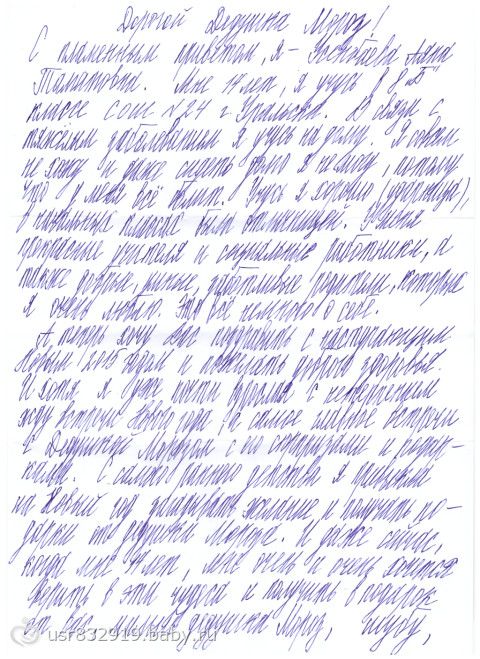 Дорогой Дедушка Мороз!
С пламенным приветом, я - Аяна
Талаповна. Мне 14 лет, я учусь в 8 "Б"
классе СОШ №24 г. Уральска. В связи с
тяжелым заболеванием я учусь на дому. Я совсем
не хожу и даже сидеть долго я не могу, потому
что у меня всё болит. Учусь я хорошо (ударница),
в начальных классах была отличницей. У меня
прекрасные учителя и социальные работники, а
также добрые, умные, заботливые родители, которых
я очень люблю. Это всё немного о себе.
А теперь хочу Вас поздравить с наступающим
Новым 2015 годом и пожелать доброго здоровья.
И хотя я уже почти взрослая с нетерпением
жду встречи Нового года и самое главное встречи
с Дедушкой Морозом с его сюрпризами и подар-
ками. С самого раннего детства я привыкла
на Новый год загадывать желание и получать по-
дарки от дедушки Мороза. И даже сейчас,
когда мне 14 лет, мне очень и очень хочется
верить в эти чудеса и получить в подарок
от Вас, милый дедушка Мороз, шубу,
usr832919.baby.ru